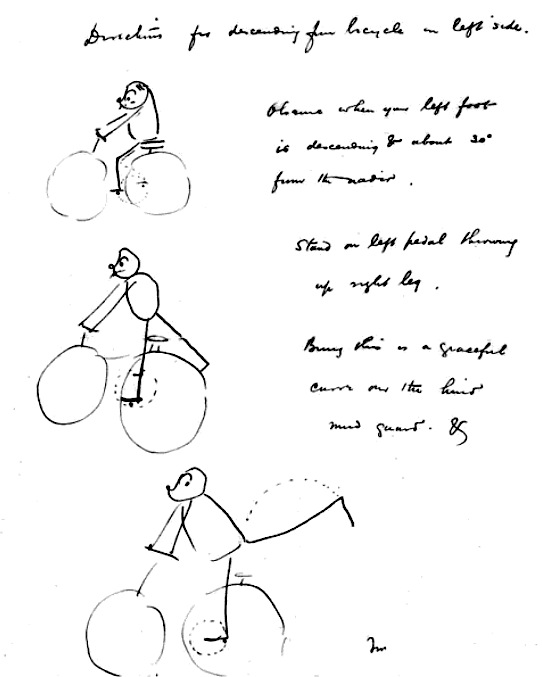 Directions for descending from bicycle on left side.
Observe when your left foot
is descending & about 30°
from the nadir.
Stand on left pedal throwing
up right leg.
Bring this in a graceful
curve over the hind
mud guard. &